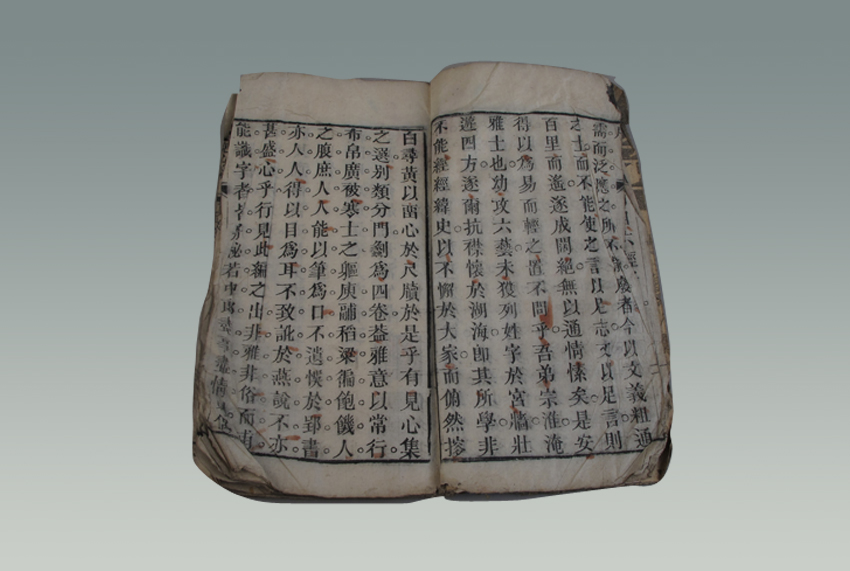 六經
需而泛應之所不常廢者今以文義粗通
之士而不能使之言以足志文以足言則
百里而遙遂成閒絕無以通情愫矣是安
得以為易而輕之置不問乎吾弟宗淮淹
雅士也幼攻六藝未獲列姓字於宮牆壯
遊四方遂爾抗襟懷於湖海卽其所學非
不能經經緯史以不懈於大家而俯然
白尋黃以心於尺牘於是乎有見心集
之選別類分門劃為四卷益雅意以常行
布帛廣被寒士之軀庾稻粱徧飽饑人
之腹庶人人能以筆為口不遺悞於郢書
亦人人得以目為耳不致訛於燕說不亦
甚盛心乎行見此編之出非雅非俗而有
能識字者若中